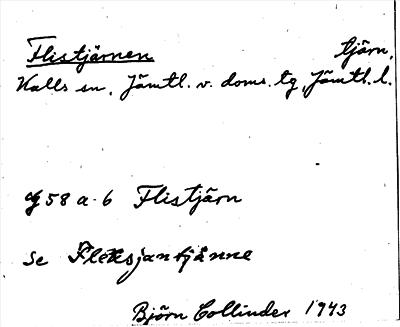 Flistjärnen tjärn,
Kalls sn, Jämtl. v. doms. tg, Jämtl. l.
58 a-b Flistjärn
se
Björn Collinder 1943